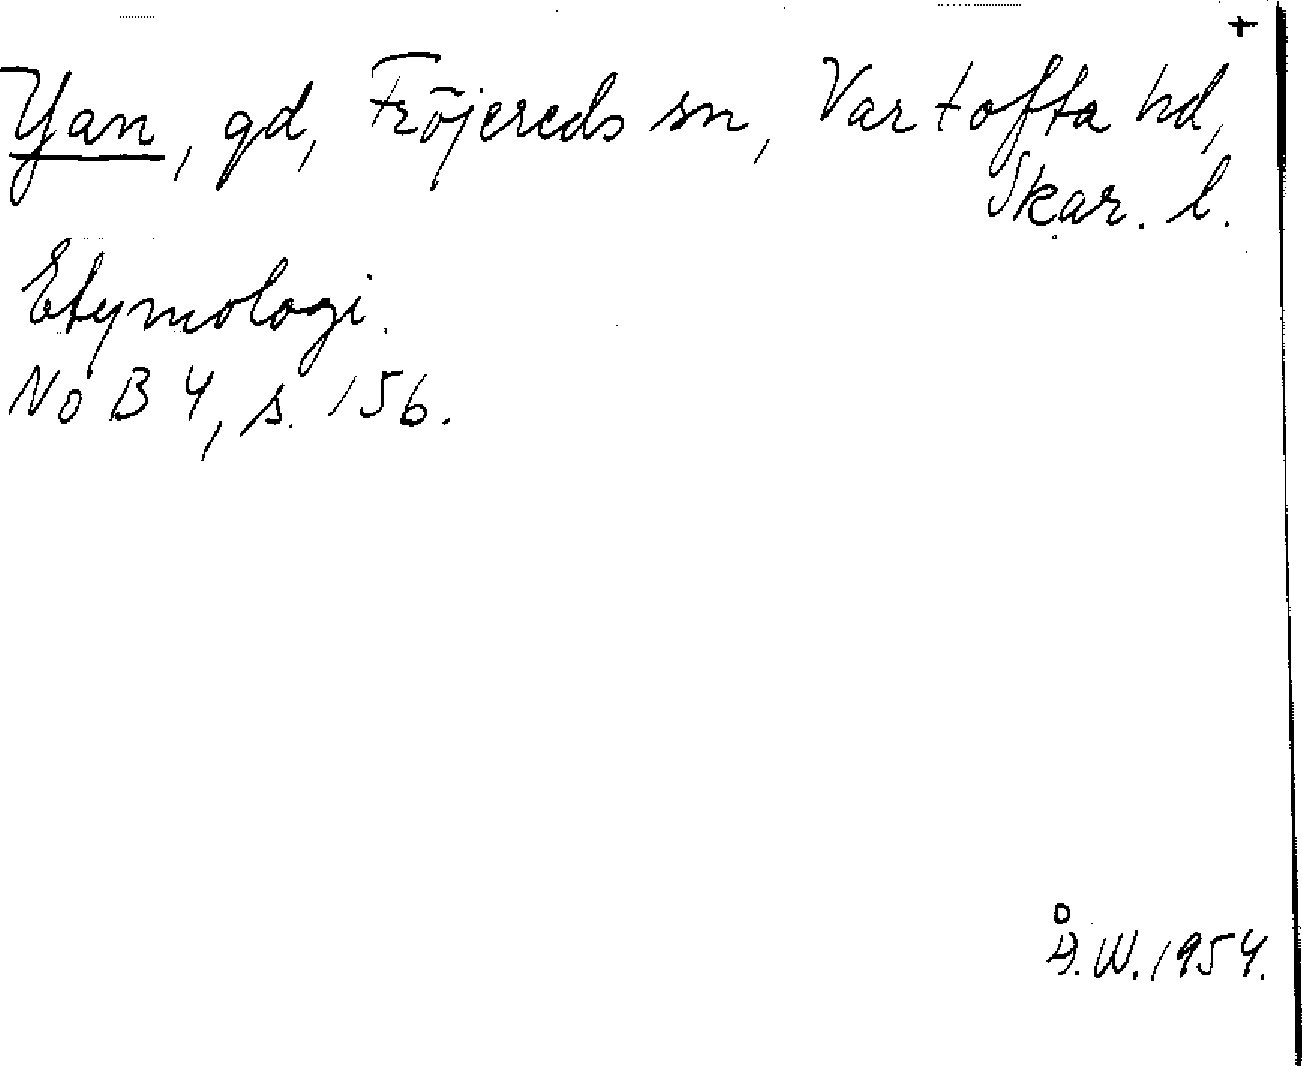 +
Yan, gd, Fröjereds sn, Vartofta hd,
Skar. l.
Etymologi.
NoB 4, s. 156.
Å.W. 1954.